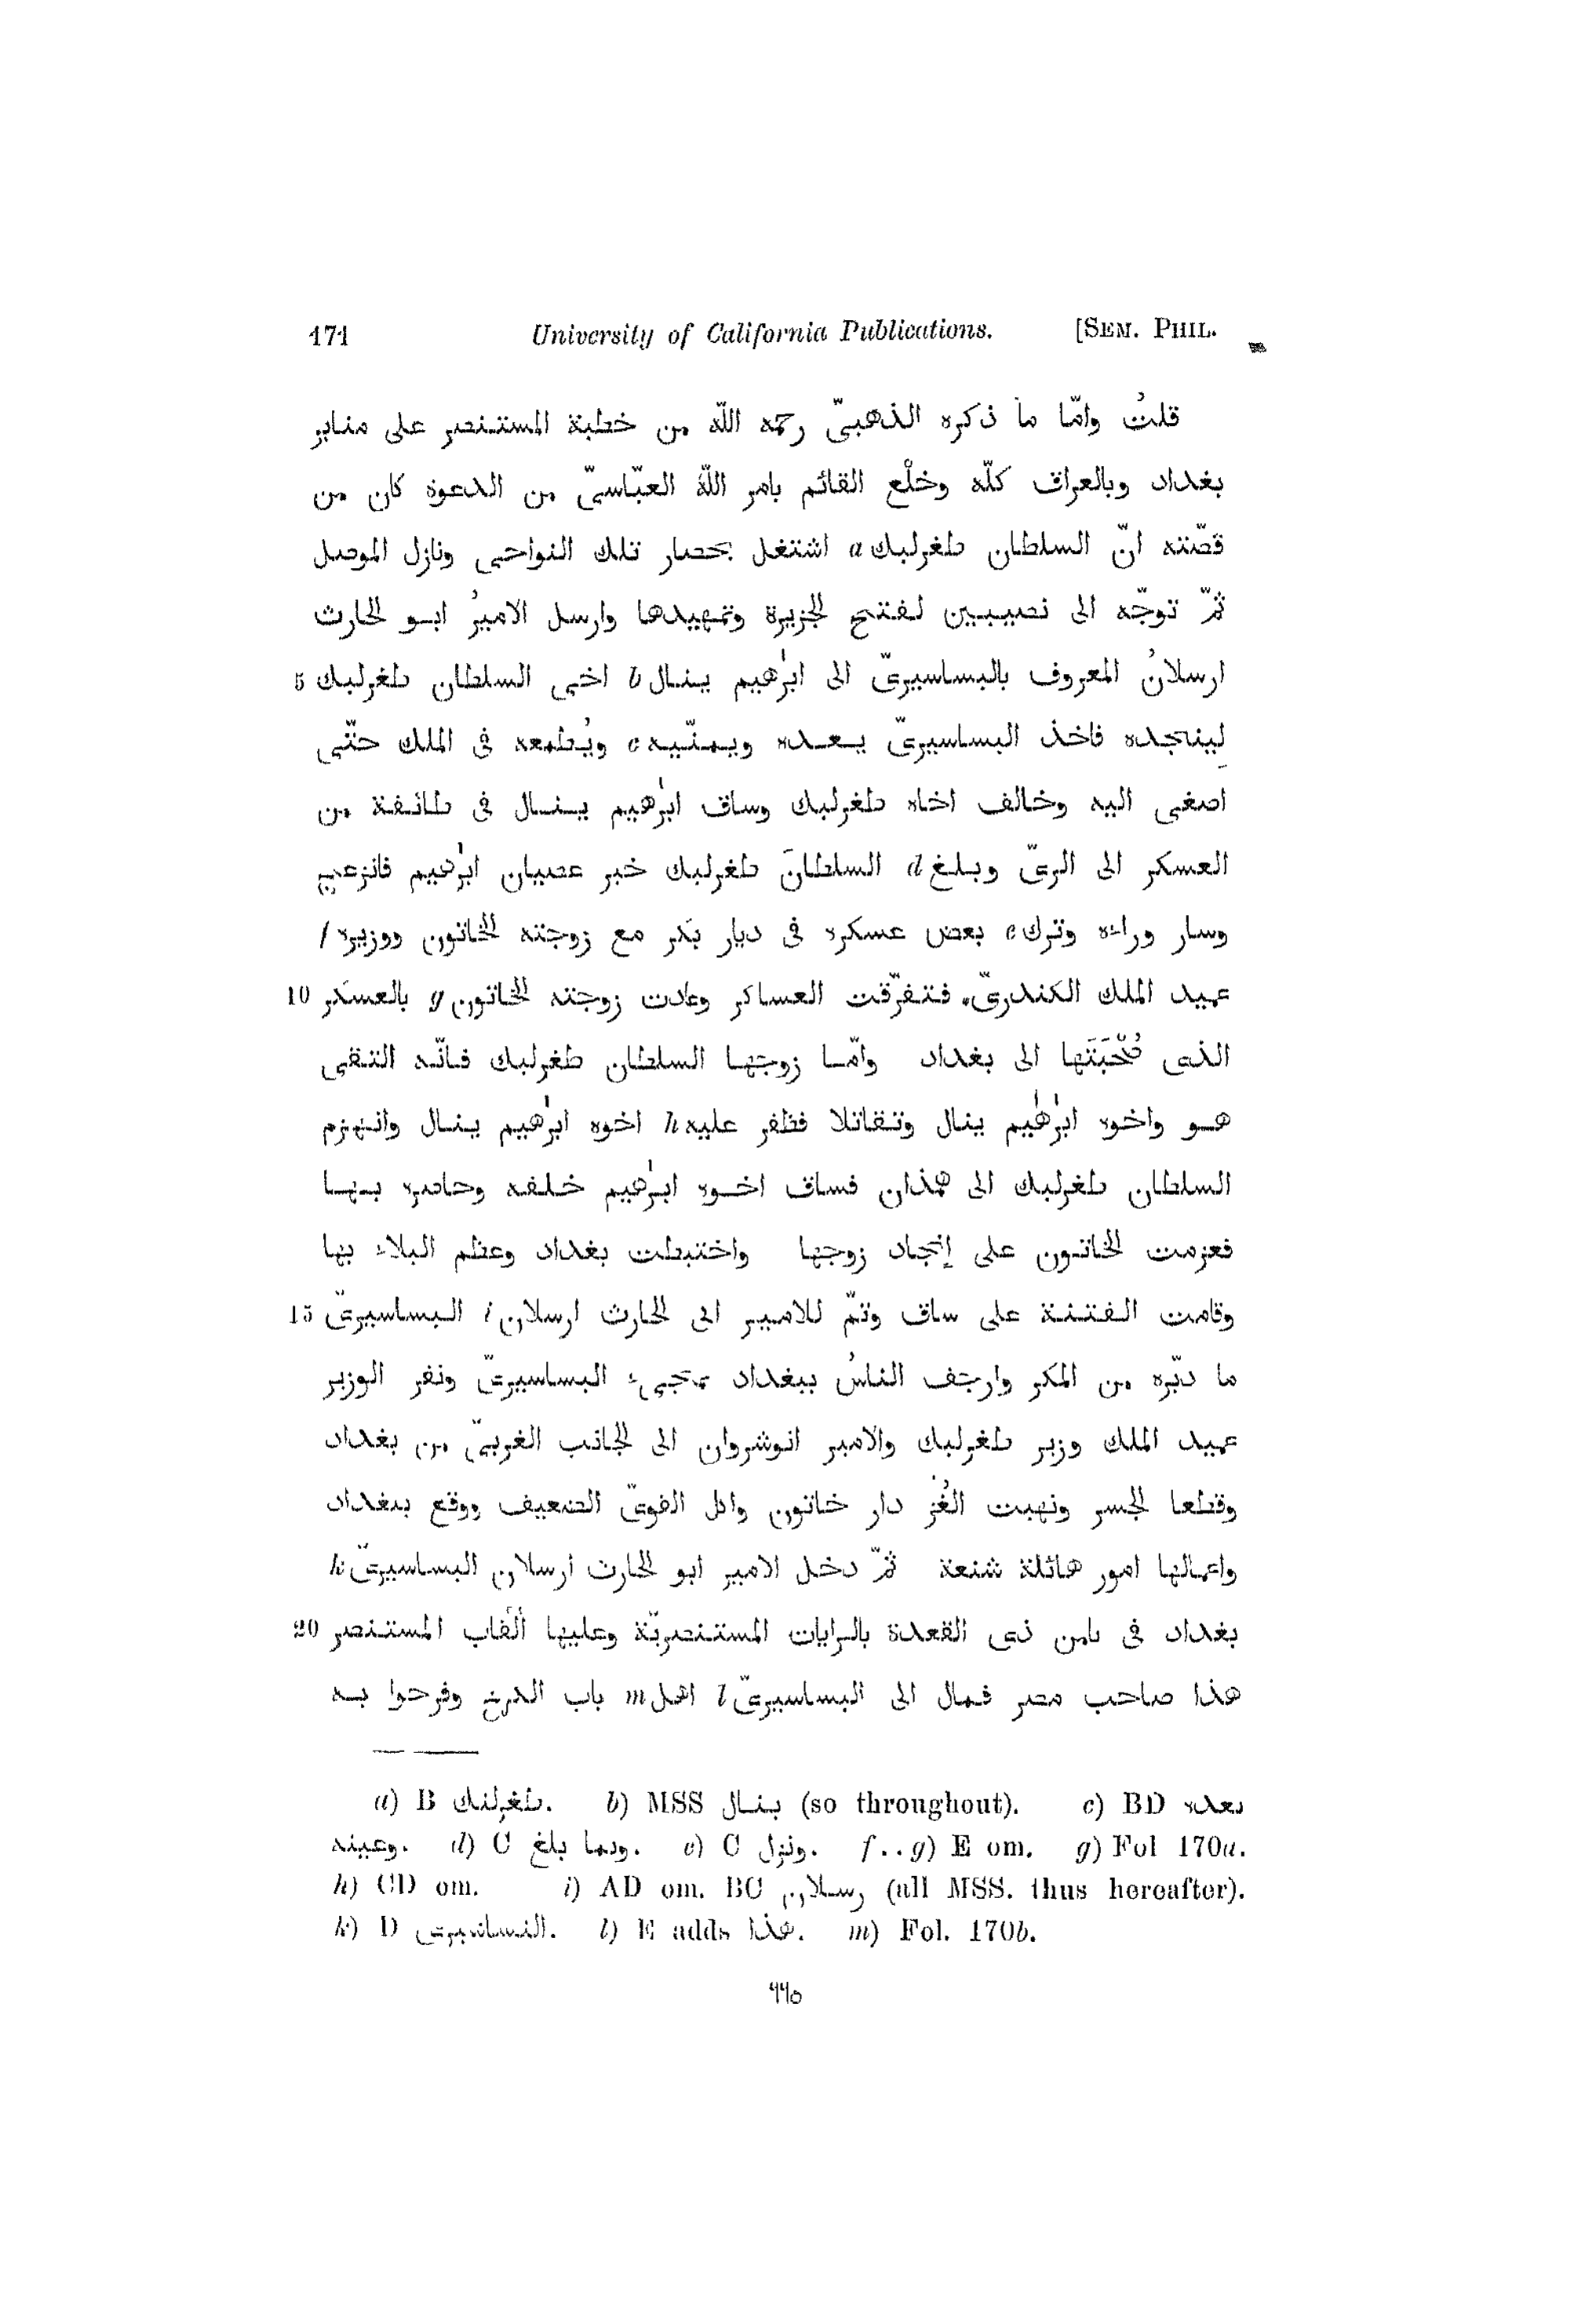 171 University of California Publications. [SEM. PHIL.
قلتُ وامّا ما ذكره الذهبىّ رحمه اللّه من خطبة المستنصر على منابر
بغداد وبالعراق كلّه وخلْع القائم بامر اللّٰه العبّاسىّ من الدعوة كان من
قصّته انّ السلطان طغرلبك a اشتغل بحصار تلك النواحى ونازل الموصل
ثمّ توجّه الى نصيبين لفتح الجزيرة وتمهيدها وارسل الاميرُ ابو الحارث
5 ارسلانُ المعروف بالبساسيرىّ الى ابرٰهيم ينال b اخى السلطان طغرلبك
لينجده فاخذ البساسيرىّ يعده ويمنّيه c ويُطمعه فى الملك حتّى
اصغى اليه وخالف اخاه طغرلبك وساق ابرٰهيم ينال فى طائفة من
العسكر الى الرىّ وبلغ d السلطانَ طغرلبك خبر عصيان ابرٰهيم فانزعج
وسار وراءه وترك e بعض عسكره فى ديار بكر مع زوجته الخاتون ووزيره f
10 عميد الملك الكندرىّ، فتفرّقت العساكر وعادت زوجته الخاتون g بالعسكر
الذى صُحْبَتَها الى بغداد وامّا زوجها السلطان طغرلبك فانّه التقى
هو واخوه ابرٰهٰيم ينال وتقاتلا فظفر عليه h اخوه ابرٰهيم ينال وانهزم
السلطان طغرلبك الى همذان فساق اخوه ابرٰهيم خلفه وحاصره بها
فعزمت الخاتون على إنجاد زوجها واختبطت بغداد وعظم البلاء بها
15 وقامت الفتنة على ساق وتمّ للامير ابى الحارث ارسلان i البساسيرىّ
ما دبّره من المكر وارجف الناسُ ببغداد بمجىء البساسيرىّ ونفر الوزير
عميد الملك وزير طغرلبك والامير انوشروان الى الجانب الغربىّ من بغداد
وقطعا الجسر ونهبت الغُز دار خاتون واكل القوىّ الضعيف ووقع ببغداد
واعمالها امور هائلة شنعة ثمّ دخل الامير ابو الحارث ارسلان البساسيرىّ k
20 بغداد فى ثامن ذى القعدة بالرايات المستنصريّة وعليها ألقاب المستنصر
هذا صاحب مصر فمال الى البساسيرىّ l اهل m باب الكرخ وفرحوا به
a) B طغرلنك. b) MSS بنال (so throughout). c) BD بعده
وعبينه. d) C وبما بلغ. e) C ونزل. f..g) E om. g) Fol 170a.
h) CD om. i) AD om. BC رسلان (all MSS. thus hereafter).
k) D. l) E adds هذا. m) Fol. 170b.